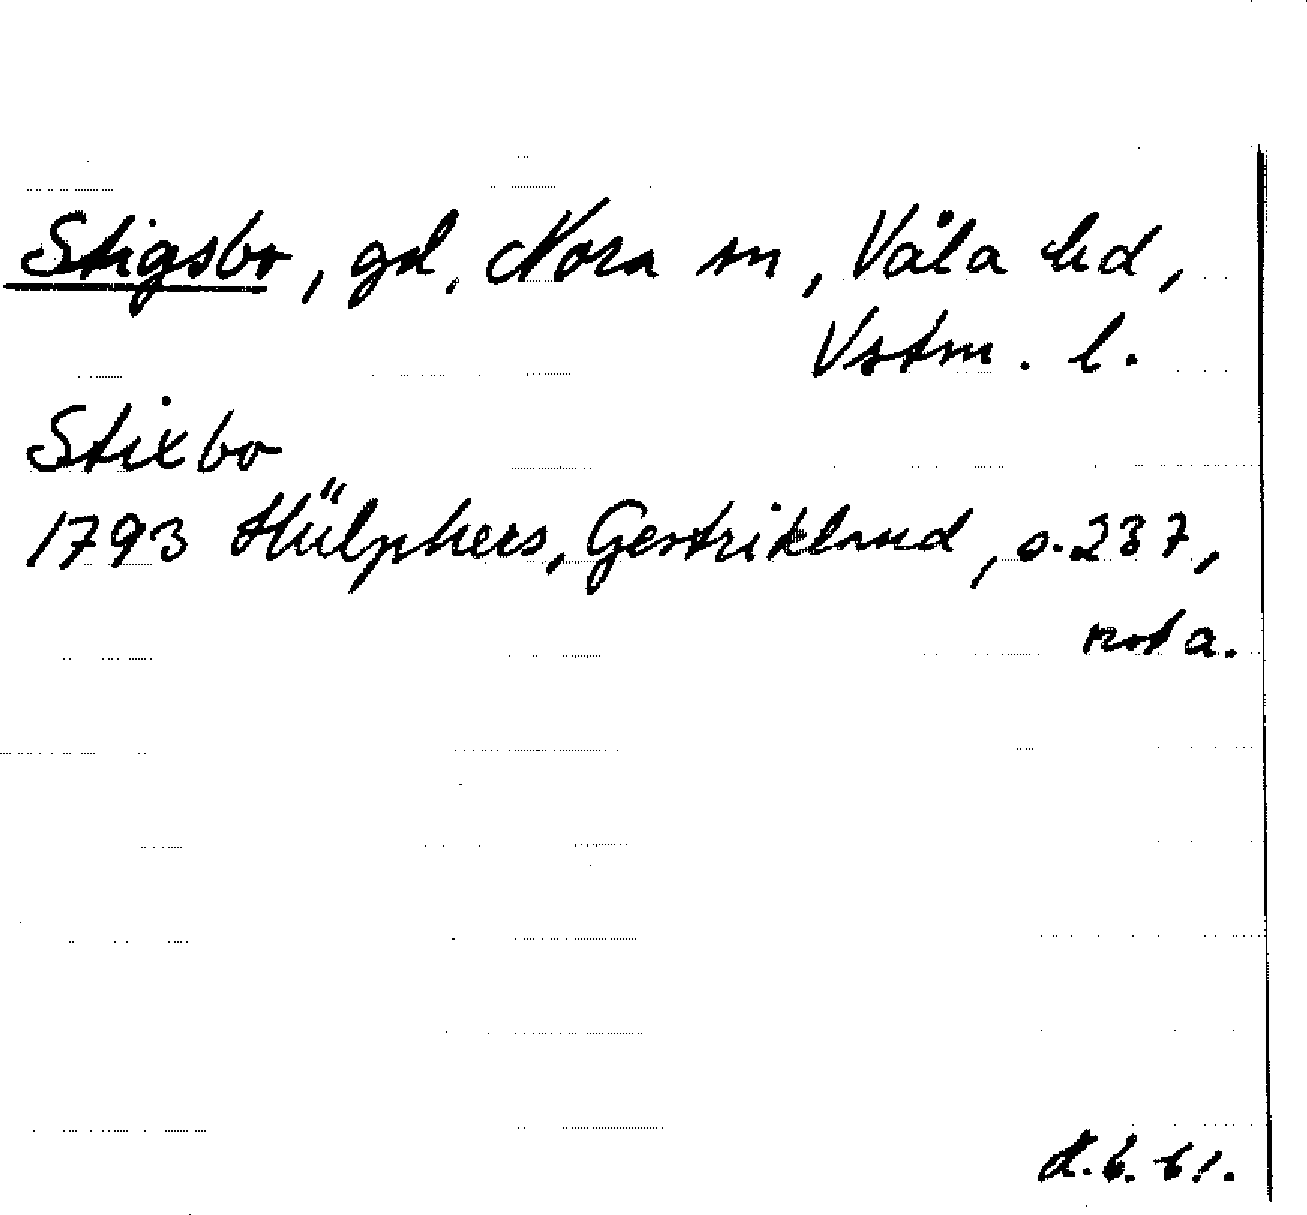 Stigsbo, gd, Nora sn, Våla hd,
Vstm. l.
Stixbo
1793 Hülphers, Gestrikland, s. 237,
nota.